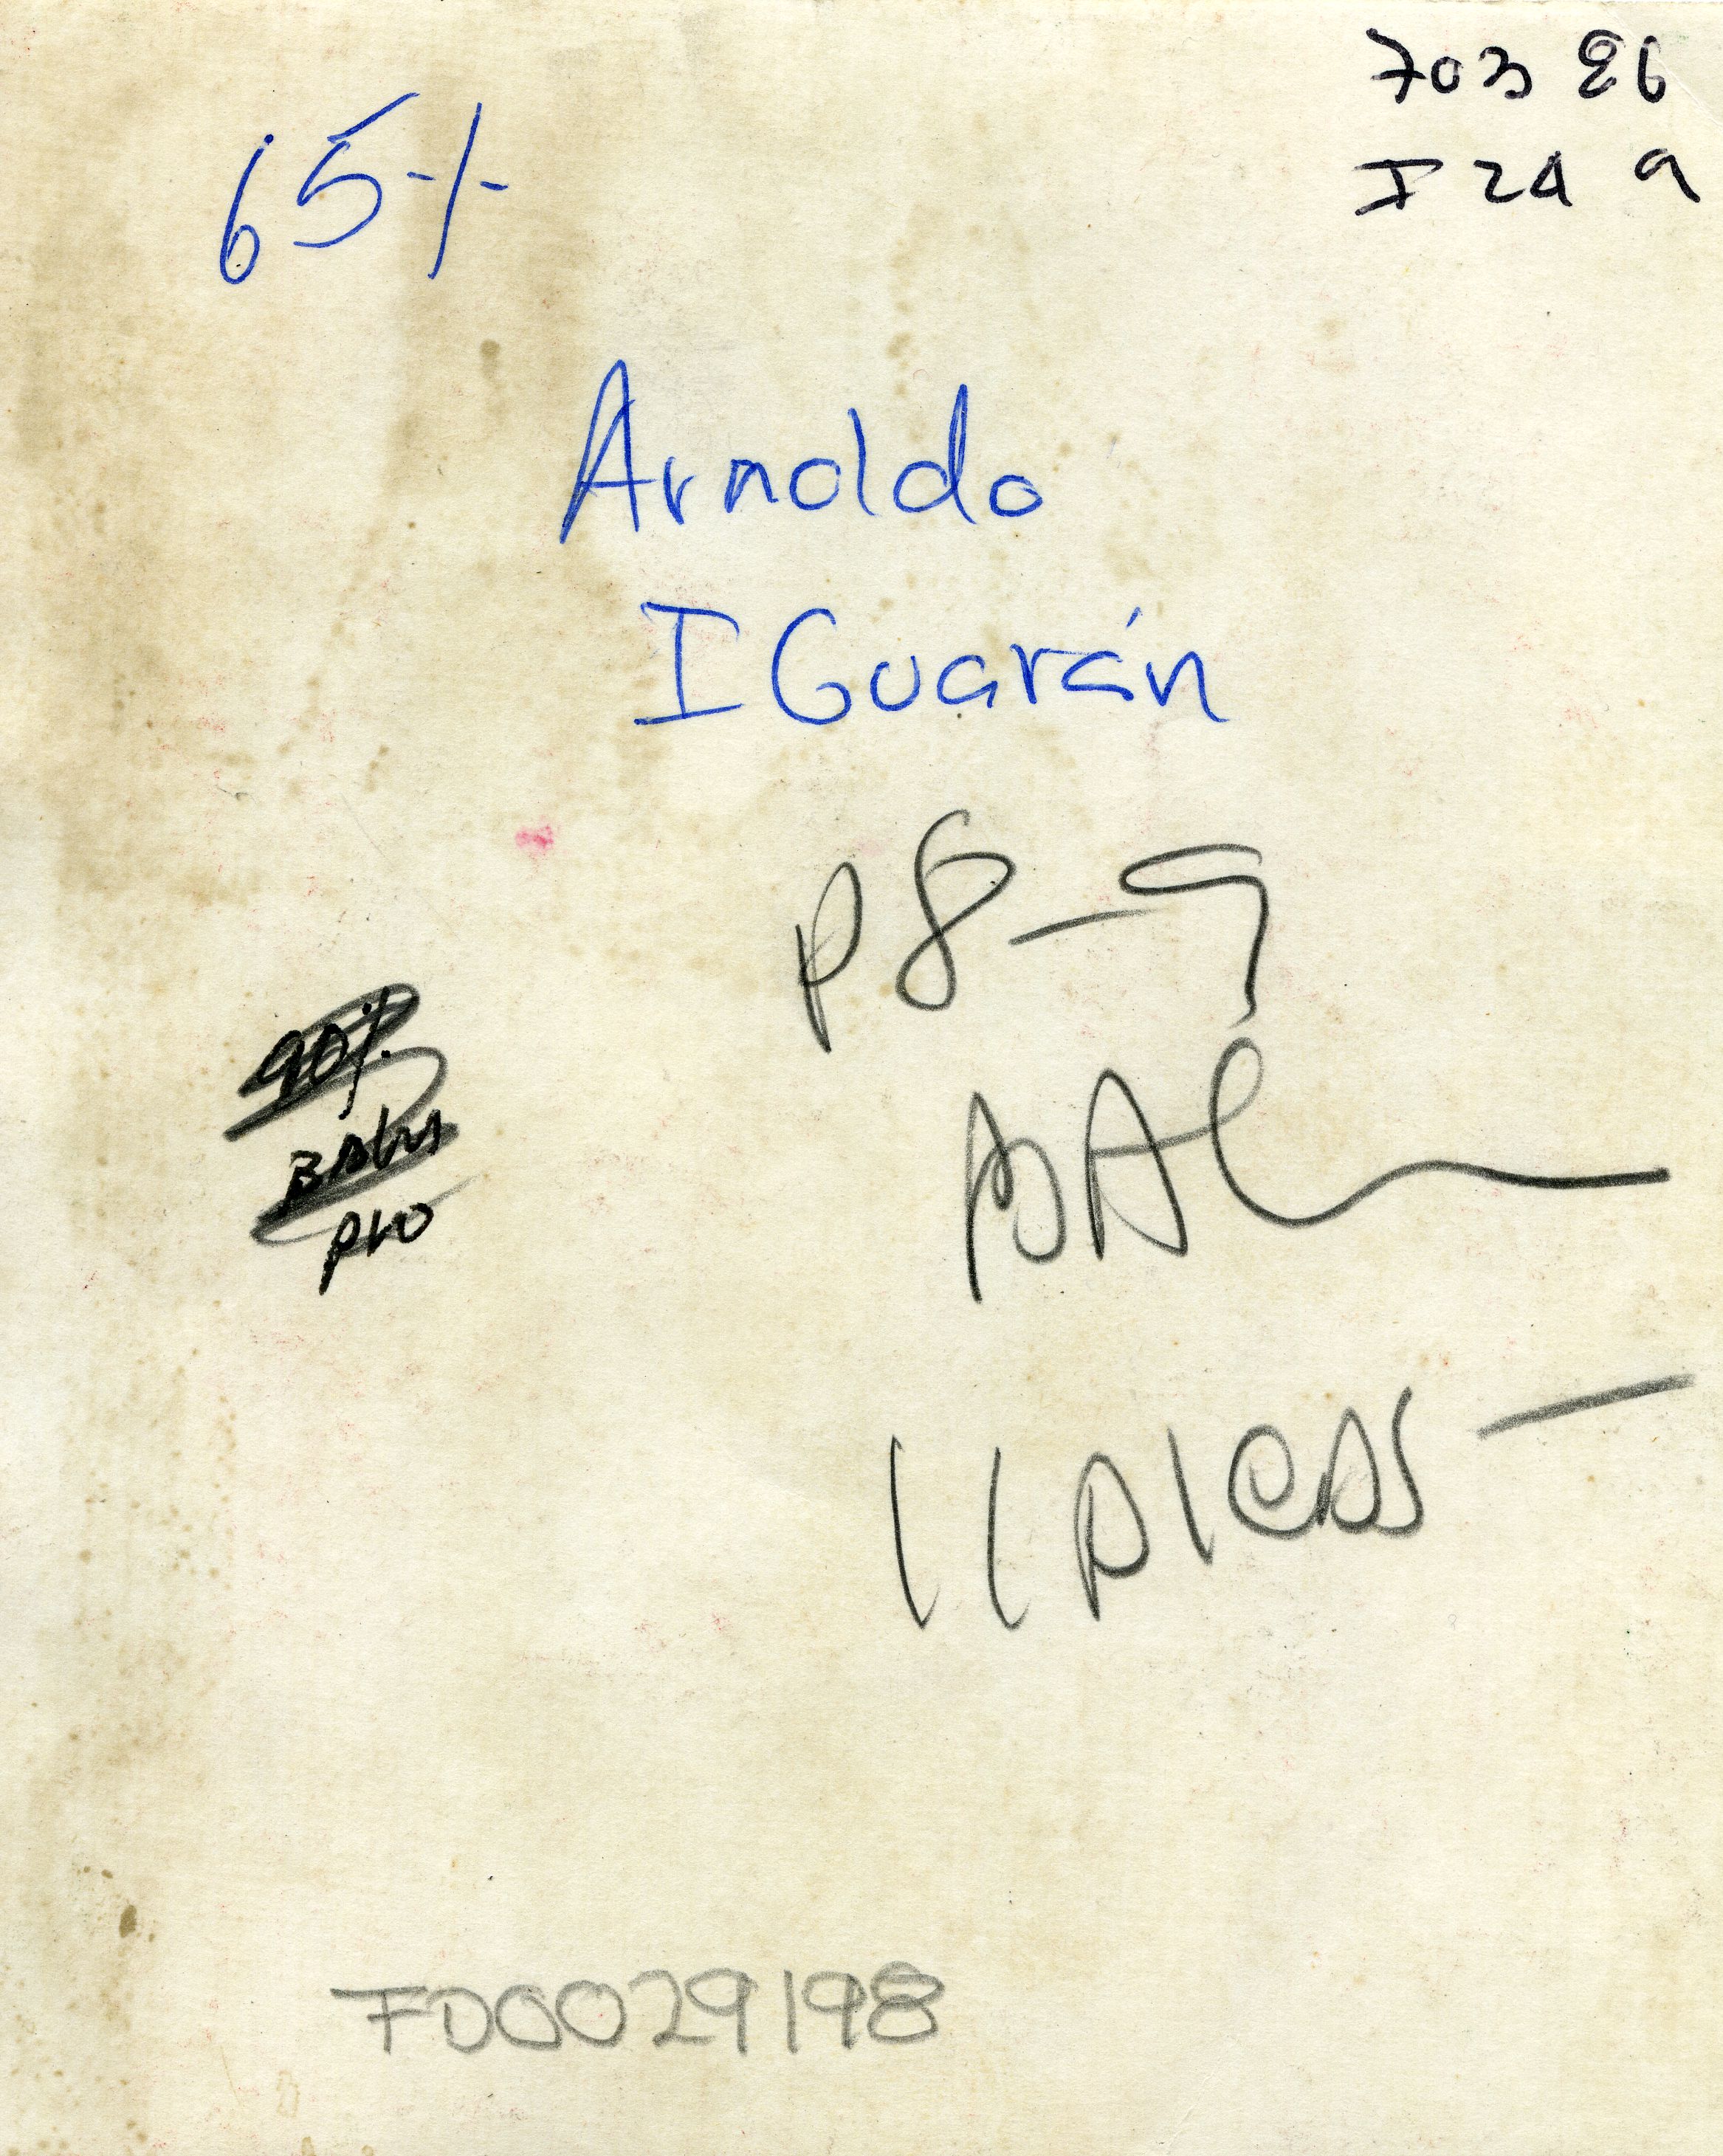 703 86
I 24 a
65%
Arnoldo
IGuarán
P8-9
BAl
11 picas
90%
FD0029198